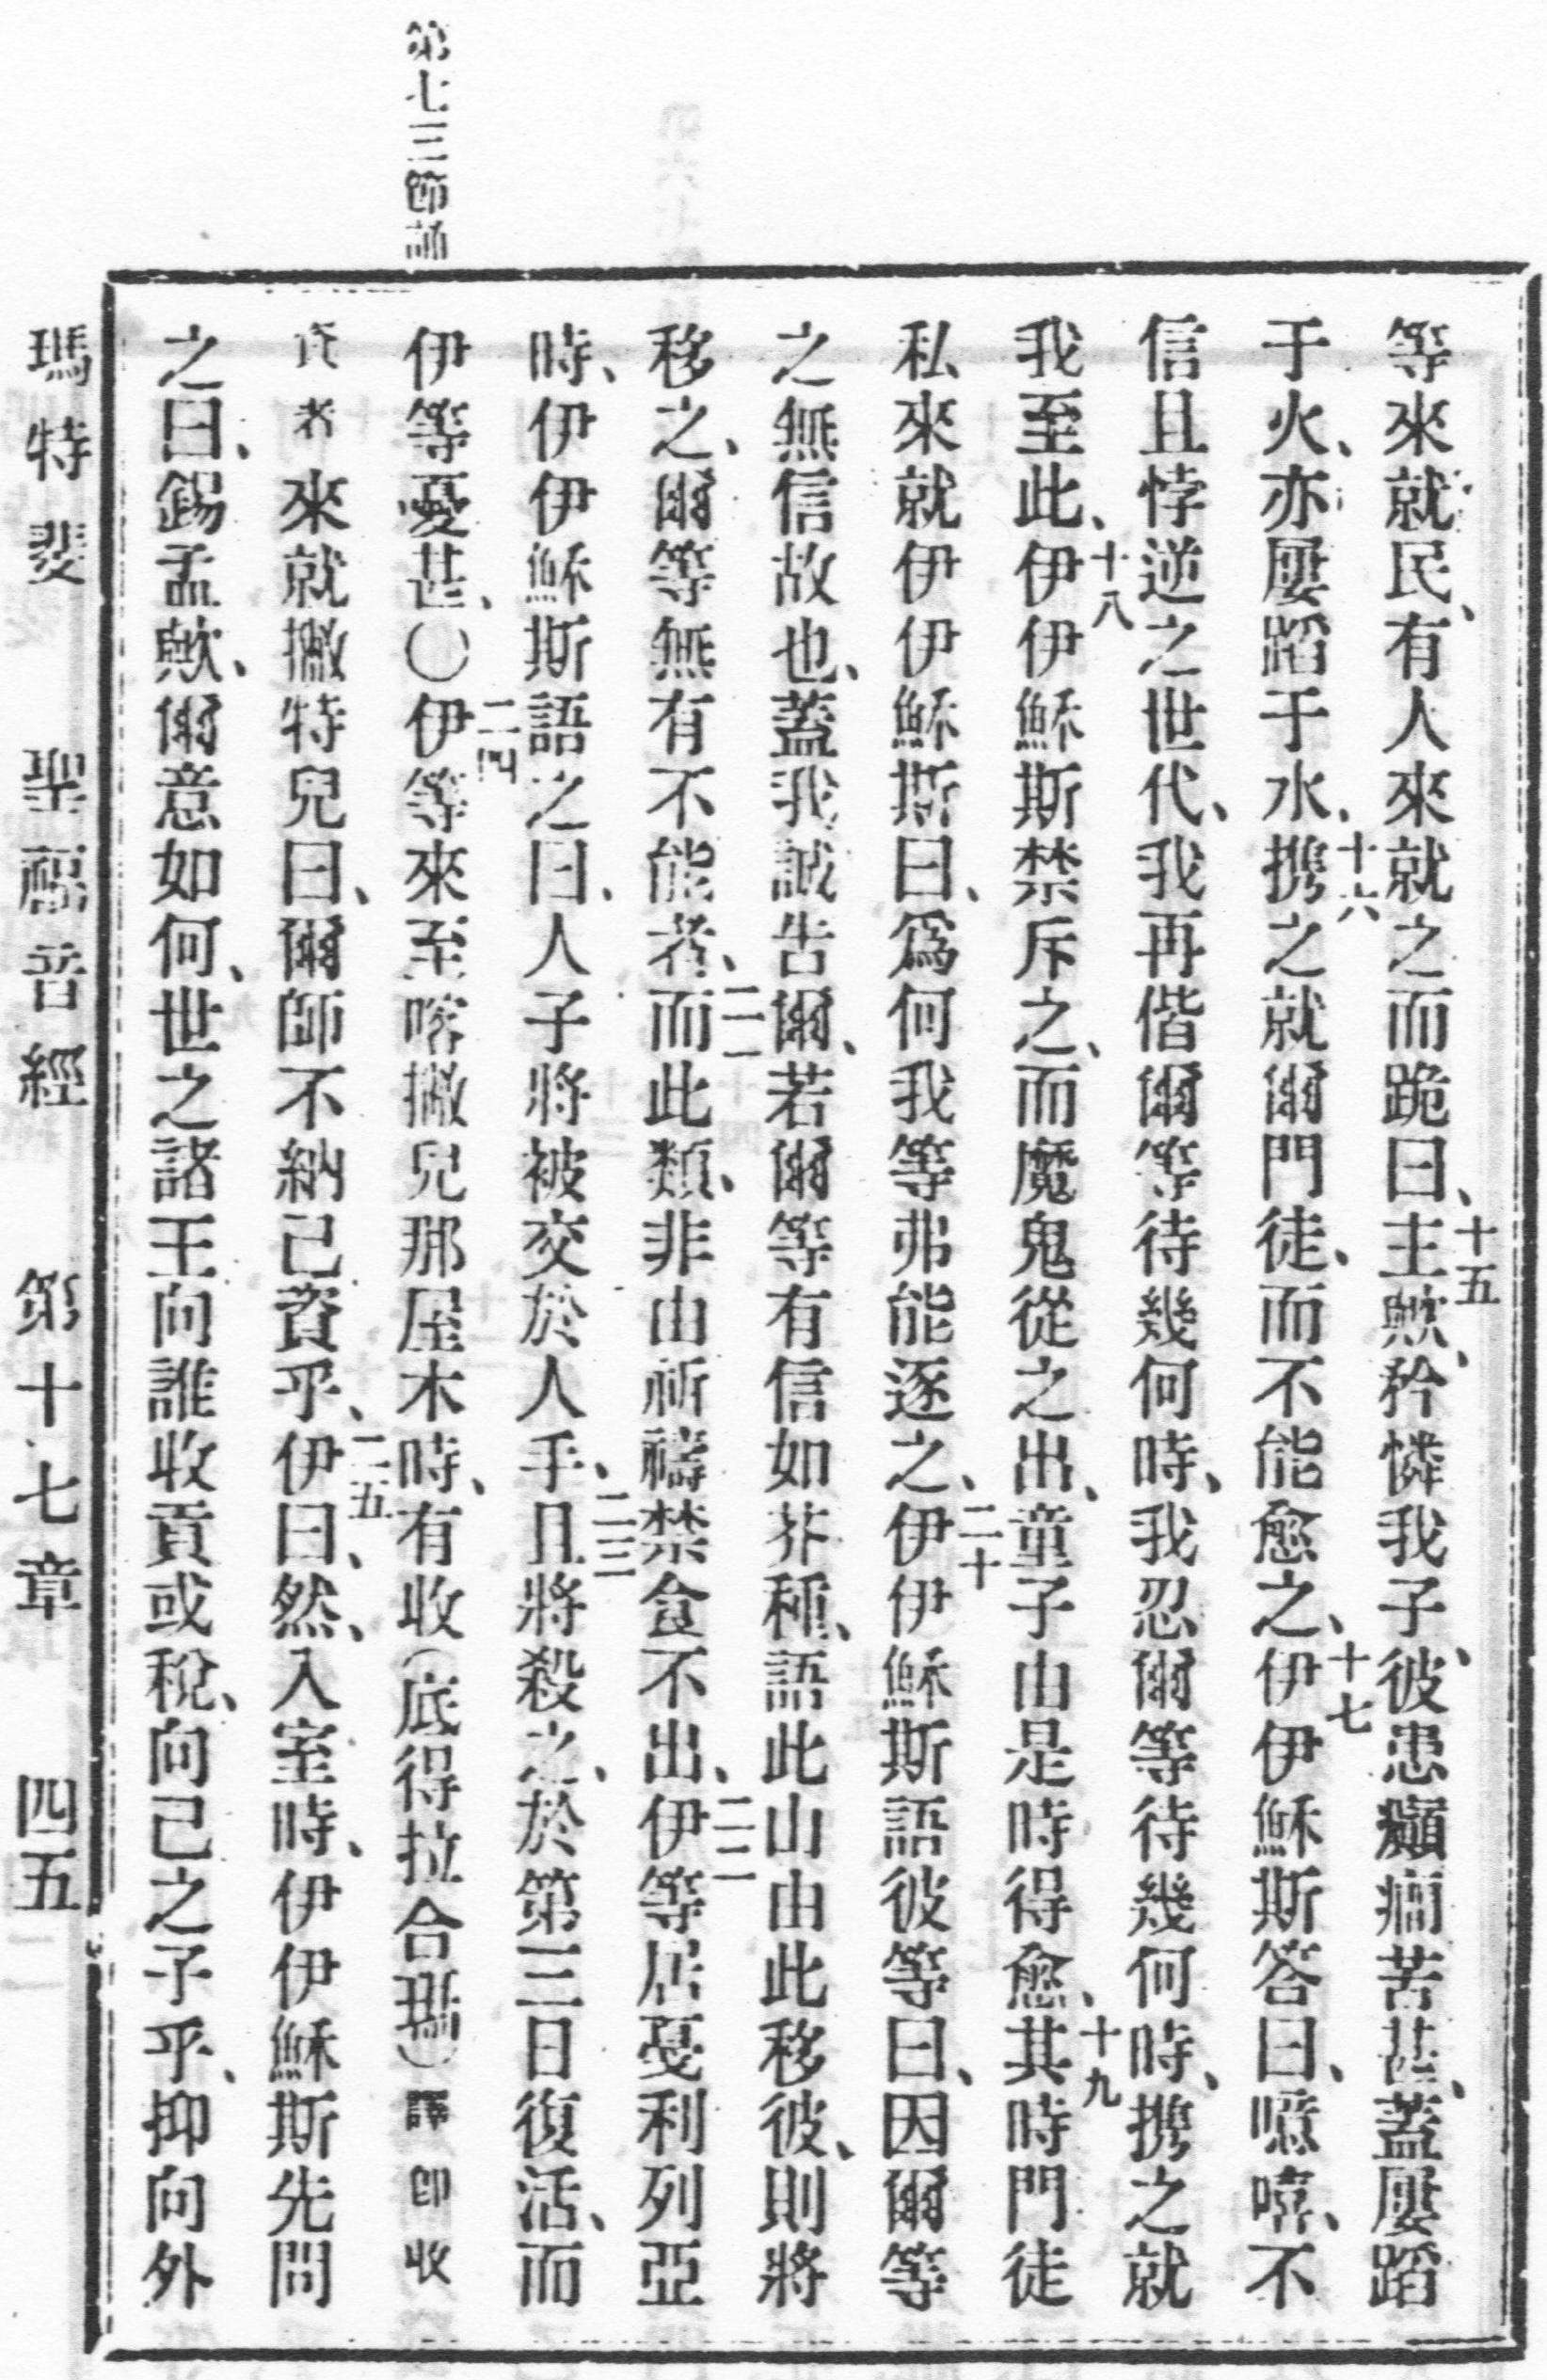 第七三節誦
等來就民、有人來就之而跪曰、十五主歟、矜憐我子、彼患癲癎苦甚、蓋屢蹈
于火、亦屢蹈于水、十六携之就爾門徒、而不能愈之、十七伊伊穌斯答曰、噫嘻、不
信且悖逆之世代、我再偕爾等待幾何時、我忍爾等待幾何時、携之就
我至此、十八伊伊穌斯禁斥之、而魔鬼從之出、童子由是時得愈、十九其時門徒
私來就伊伊穌斯曰、爲何我等弗能逐之、二十伊伊穌斯語彼等曰、因爾等
之無信故也、蓋我誠告爾、若爾等有信如芥種、語此山由此移彼、則將
移之、爾等無有不能者、二一而此類、非由祈禱禁食不出、二二伊等居戞利列亞
時、伊伊穌斯語之曰、人子將被交於人手、二三且將殺之、於第三日復活、而
伊等憂甚、〇二四伊等來至喀撇兒那屋木時、有收(底得拉合瑪)譯卽收
稅者來就撇特兒曰、爾師不納己資乎、二五伊曰、然、入室時、伊伊穌斯先問
之曰、錫孟歟、爾意如何、世之諸王向誰收貢或稅、向己之子乎、抑向外
瑪特斐 聖福音經 第十七章 四五